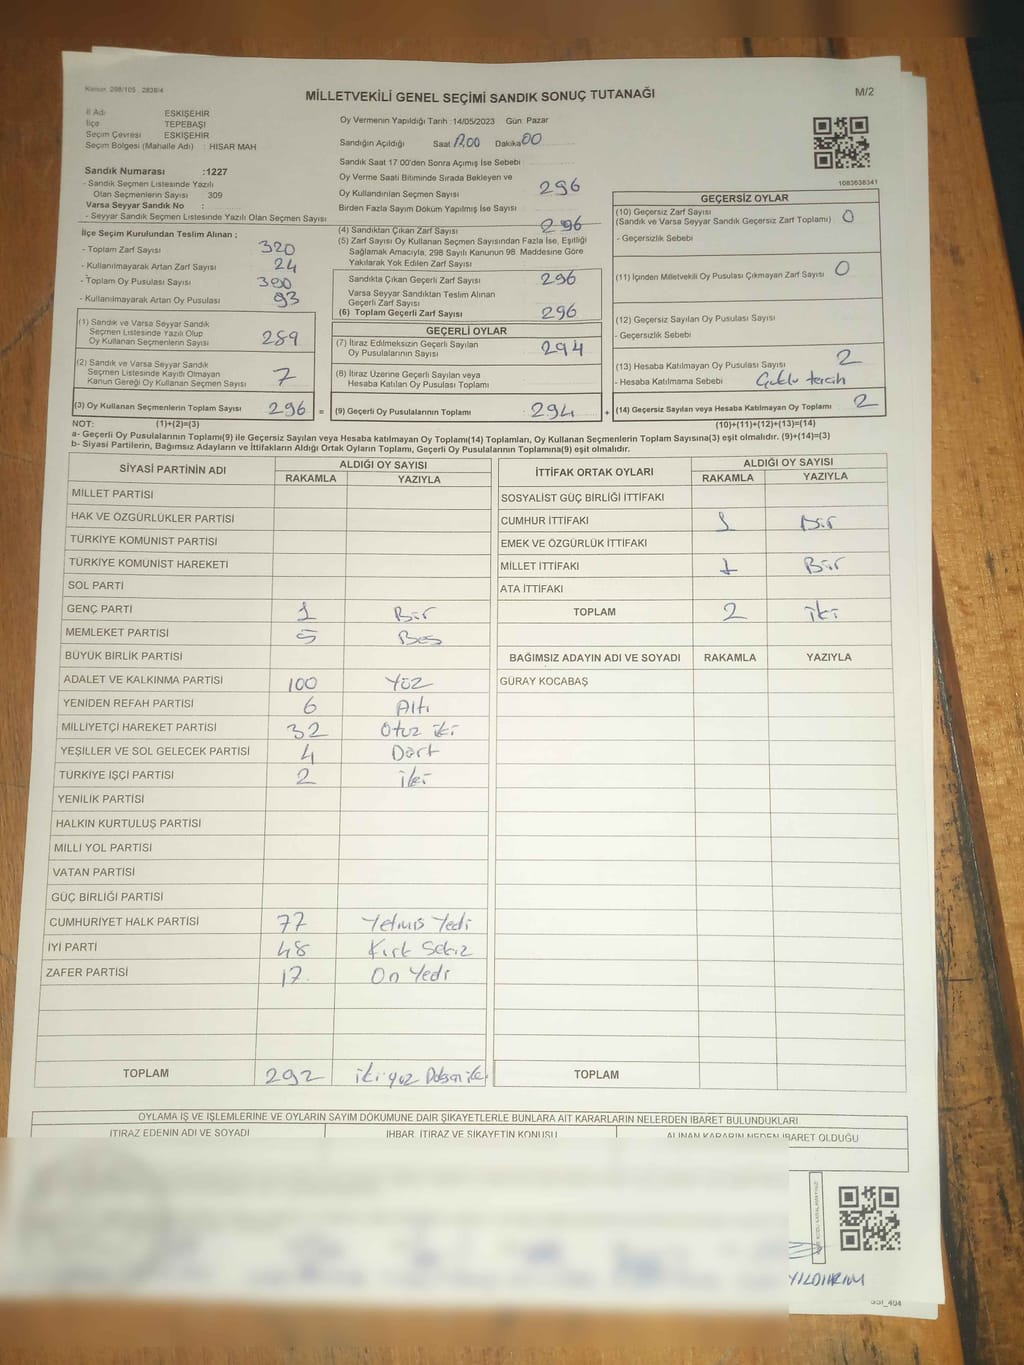 Kanun: 298/105 , 2839/4
MİLLETVEKİLİ GENEL SEÇİMİ SANDIK SONUÇ TUTANAĞI
M/2
İl Adı ESKİŞEHİR
İlçe TEPEBAŞI
Seçim Çevresi ESKİŞEHİR
Seçim Bölgesi (Mahalle Adı) : HISAR MAH
Sandık Numarası :1227
- Sandık Seçmen Listesinde Yazılı
Olan Seçmenlerin Sayısı 309
Varsa Seyyar Sandık No :
- Seyyar Sandık Seçmen Listesinde Yazılı Olan Seçmen Sayısı
İlçe Seçim Kurulundan Teslim Alınan ;
- Toplam Zarf Sayısı 320
- Kullanılmayarak Artan Zarf Sayısı 24
- Toplam Oy Pusulası Sayısı
- Kullanılmayarak Artan Oy Pusulası 93
(1) Sandık ve Varsa Seyyar Sandık
Seçmen Listesinde Yazılı Olup
Oy Kullanan Seçmenlerin Sayısı 289
(2) Sandık ve Varsa Seyyar Sandık
Seçmen Listesinde Kayıtlı Olmayan
Kanun Gereği Oy Kullanan Seçmen Sayısı 7
(3) Oy Kullanan Seçmenlerin Toplam Sayısı 296 =
Oy Vermenin Yapıldığı Tarih :14/05/2023 Gün: Pazar
Sandığın Açıldığı Saat Dakika 00
Sandık Saat 17:00'den Sonra Açımış İse Sebebi :
Oy Verme Saati Bitiminde Sırada Bekleyen ve
Oy Kullandırılan Seçmen Sayısı 296
Birden Fazla Sayım Döküm Yapılmış İse Sayısı :
(4) Sandıktan Çıkan Zarf Sayısı 296
(5) Zarf Sayısı Oy Kullanan Seçmen Sayısından Fazla İse, Eşitliği
Sağlamak Amacıyla, 298 Sayılı Kanunun 98. Maddesine Göre
Yakılarak Yok Edilen Zarf Sayısı :
Sandıkta Çıkan Geçerli Zarf Sayısı 296
Varsa Seyyar Sandıktan Teslim Alınan
Geçerli Zarf Sayısı
(6) Toplam Geçerli Zarf Sayısı 296
GEÇERLİ OYLAR
(7) İtiraz Edilmeksizin Geçerli Sayılan
Oy Pusulalarının Sayısı 294
(8) İtiraz Üzerine Geçerli Sayılan veya
Hesaba Katılan Oy Pusulası Toplamı
(9) Geçerli Oy Pusulalarının Toplamı : 294 +
1083638341
GEÇERSİZ OYLAR
(10) Geçersiz Zarf Sayısı 0
(Sandık ve Varsa Seyyar Sandık Geçersiz Zarf Toplamı)
- Geçersizlik Sebebi
(11) İçinden Milletvekili Oy Pusulası Çıkmayan Zarf Sayısı 0
(12) Geçersiz Sayılan Oy Pusulası Sayısı
- Geçersizlik Sebebi
(13) Hesaba Katılmayan Oy Pusulası Sayısı 2
- Hesaba Katılmama Sebebi tercih
(14) Geçersiz Sayılan veya Hesaba Katılmayan Oy Toplamı 2
NOT: (1)+(2)=(3) (10)+(11)+(12)+(13)=(14)
a- Geçerli Oy Pusulalarının Toplamı(9) ile Geçersiz Sayılan veya Hesaba katılmayan Oy Toplamı(14) Toplamları, Oy Kullanan Seçmenlerin Toplam Sayısına(3) eşit olmalıdır. (9)+(14)=(3)
b- Siyasi Partilerin, Bağımsız Adayların ve İttifakların Aldığı Ortak Oyların Toplamı, Geçerli Oy Pusulalarının Toplamına(9) eşit olmalıdır.
SİYASİ PARTİNİN ADI ALDIĞI OY SAYISI
RAKAMLA YAZIYLA
MİLLET PARTİSİ
HAK VE ÖZGÜRLÜKLER PARTİSİ
TÜRKİYE KOMÜNİST PARTİSİ
TÜRKİYE KOMÜNİST HAREKETİ
SOL PARTİ
GENÇ PARTİ 1 Bir
MEMLEKET PARTİSİ 5 Beş
BÜYÜK BİRLİK PARTİSİ
ADALET VE KALKINMA PARTİSİ 100 Yüz
YENİDEN REFAH PARTİSİ 6 Altı
MİLLİYETÇİ HAREKET PARTİSİ 32 Otuz iki
YEŞİLLER VE SOL GELECEK PARTİSİ 4 Dört
TÜRKİYE İŞÇİ PARTİSİ 2 iki
YENİLİK PARTİSİ
HALKIN KURTULUŞ PARTİSİ
MİLLİ YOL PARTİSİ
VATAN PARTİSİ
GÜÇ BİRLİĞİ PARTİSİ
CUMHURİYET HALK PARTİSİ 77 Yetmiş Yedi
İYİ PARTİ 48 Kırk Sekiz
ZAFER PARTİSİ 17 On Yedi
TOPLAM 292 iki yüz Doksan iki
İTTİFAK ORTAK OYLARI ALDIĞI OY SAYISI
RAKAMLA YAZIYLA
SOSYALİST GÜÇ BİRLİĞİ İTTİFAKI
CUMHUR İTTİFAKI 1 Bir
EMEK VE ÖZGÜRLÜK İTTİFAKI
MİLLET İTTİFAKI 1 Bir
ATA İTTİFAKI
TOPLAM 2 iki
BAĞIMSIZ ADAYIN ADI VE SOYADI RAKAMLA YAZIYLA
GÜRAY KOCABAŞ
TOPLAM
OYLAMA İŞ VE İŞLEMLERİNE VE OYLARIN SAYIM DÖKÜMÜNE DAİR ŞİKAYETLERLE BUNLARA AİT KARARLARIN NELERDEN İBARET BULUNDUKLARI
İTİRAZ EDENİN ADI VE SOYADI İHBAR, İTİRAZ VE ŞİKAYETİN KONUSU ALINAN KARARIN NEDEN İBARET OLDUĞU
YILDIRIM